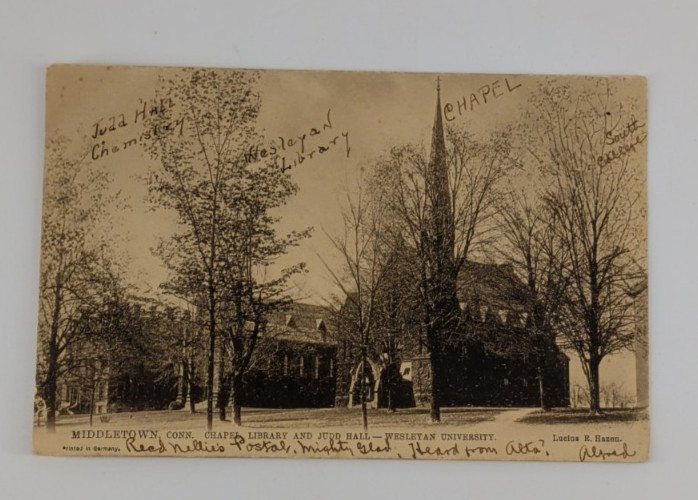 Judd Hall
Chemistry
Wesleyan
Library
CHAPEL
South
College
MIDDLETOWN, CONN. CHAPEL, LIBRARY AND JUDD HALL — WESLEYAN UNIVERSITY.
Lucius R. Hazen.
Printed in Germany.
Recd Nellie's Postal, Mighty Glad, Heard from Alta?
Alfred